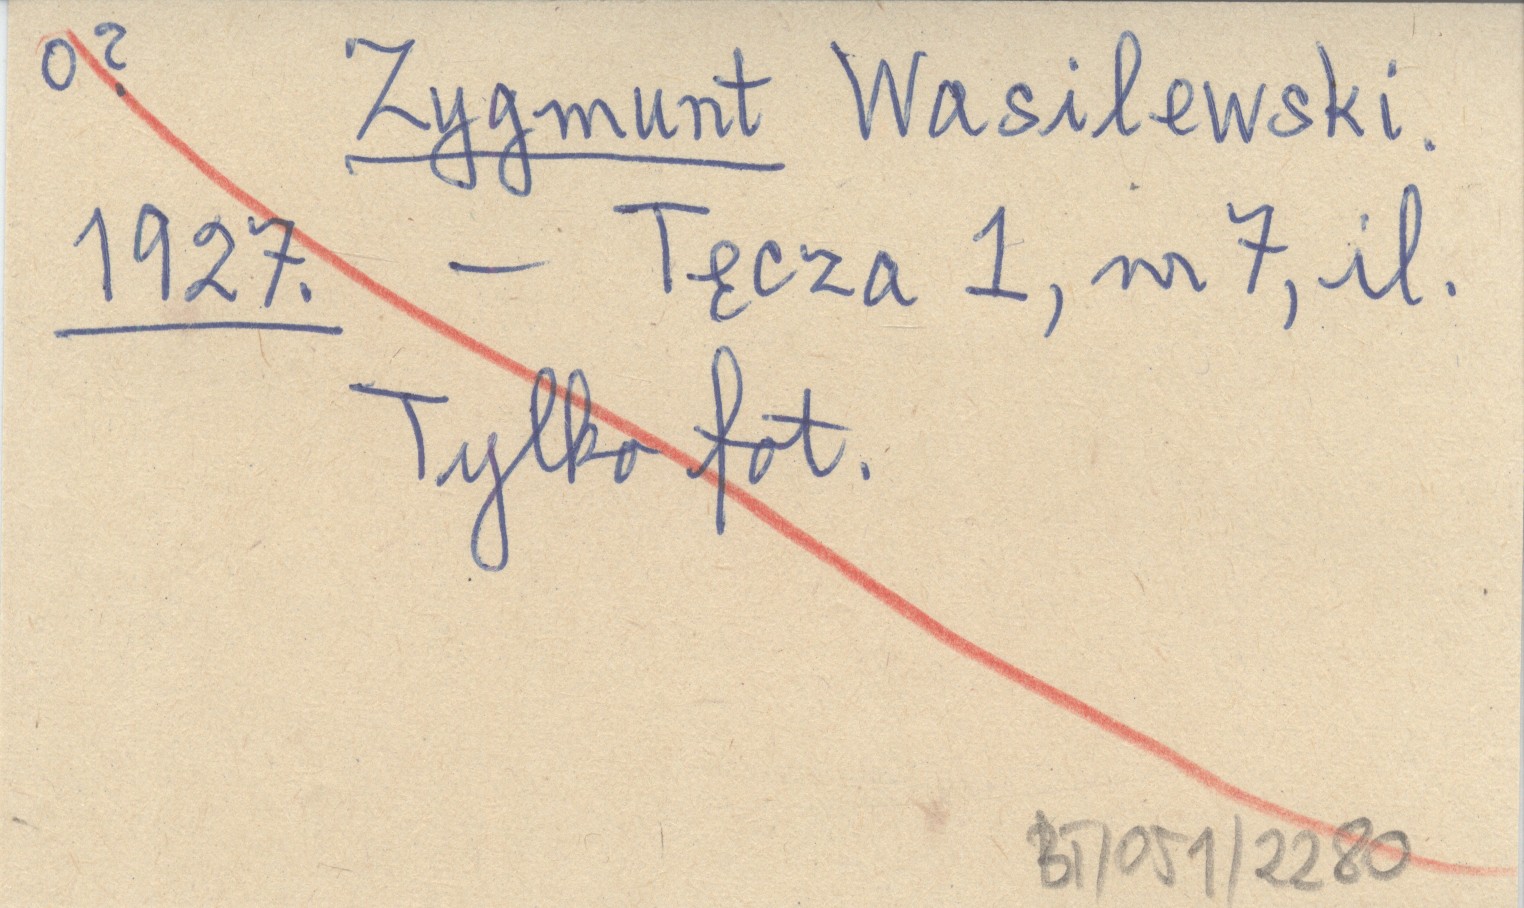 o? Zygmunt Wasilewski.
1927. — Tęcza 1, nr 7, il.
Tylko fot.
BT/051/2280